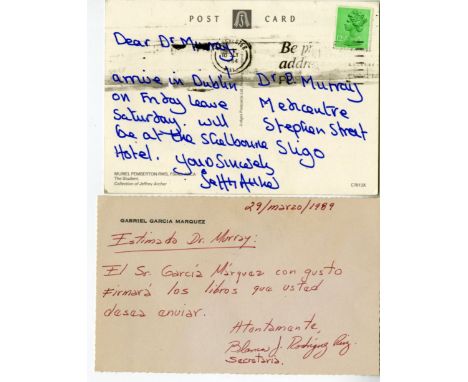 POST CARD
Dear Dr Murray
arrive in Dublin
on Friday leave
Saturday. will
be at the Shelbourne
Hotel. Yours Sincerely
Be pr
addre
Dr P. Murray
Medcentre
Stephen Street
Sligo
MURIEL PEMBERTON RWS,
The Student
Collection of Jeffrey Archer
29/marzo/1989
GABRIEL GARCIA MARQUEZ
Estimado Dr. Murray:
El Sr. García Márquez con gusto
firmará los libros que usted
desea enviar.
Atentamente,
Blanca J. Rodríguez
Secretaria.